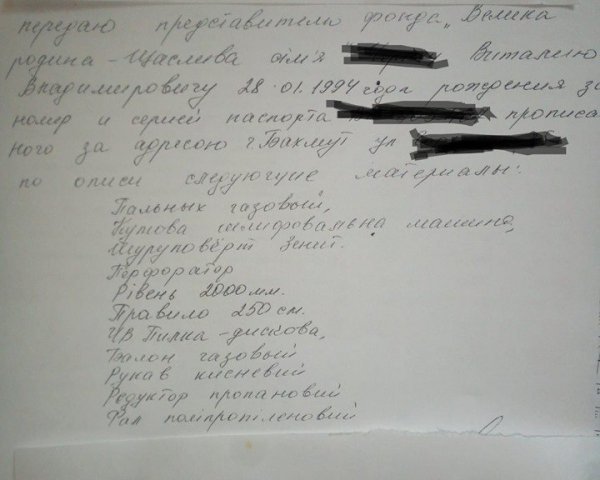 передаю представителю фонда „Велика
родина - Щаслива сім'я Виталию
Владимировичу 28.01.1994 года рождения за
номер и серией паспорта прописа
ного за адресою г Бахмут ул
по описи следующие материалы:
Пальнык газовый,
Кутова шлифовальна машина,
Шуруповёрт Зенит.
Перфоратор
Рівень 2000мм.
Правило 250 см.
Пилка - дискова,
Балон газовый
Рукав кисневий
Редуктор пропановий
Фал поліпропіленовий